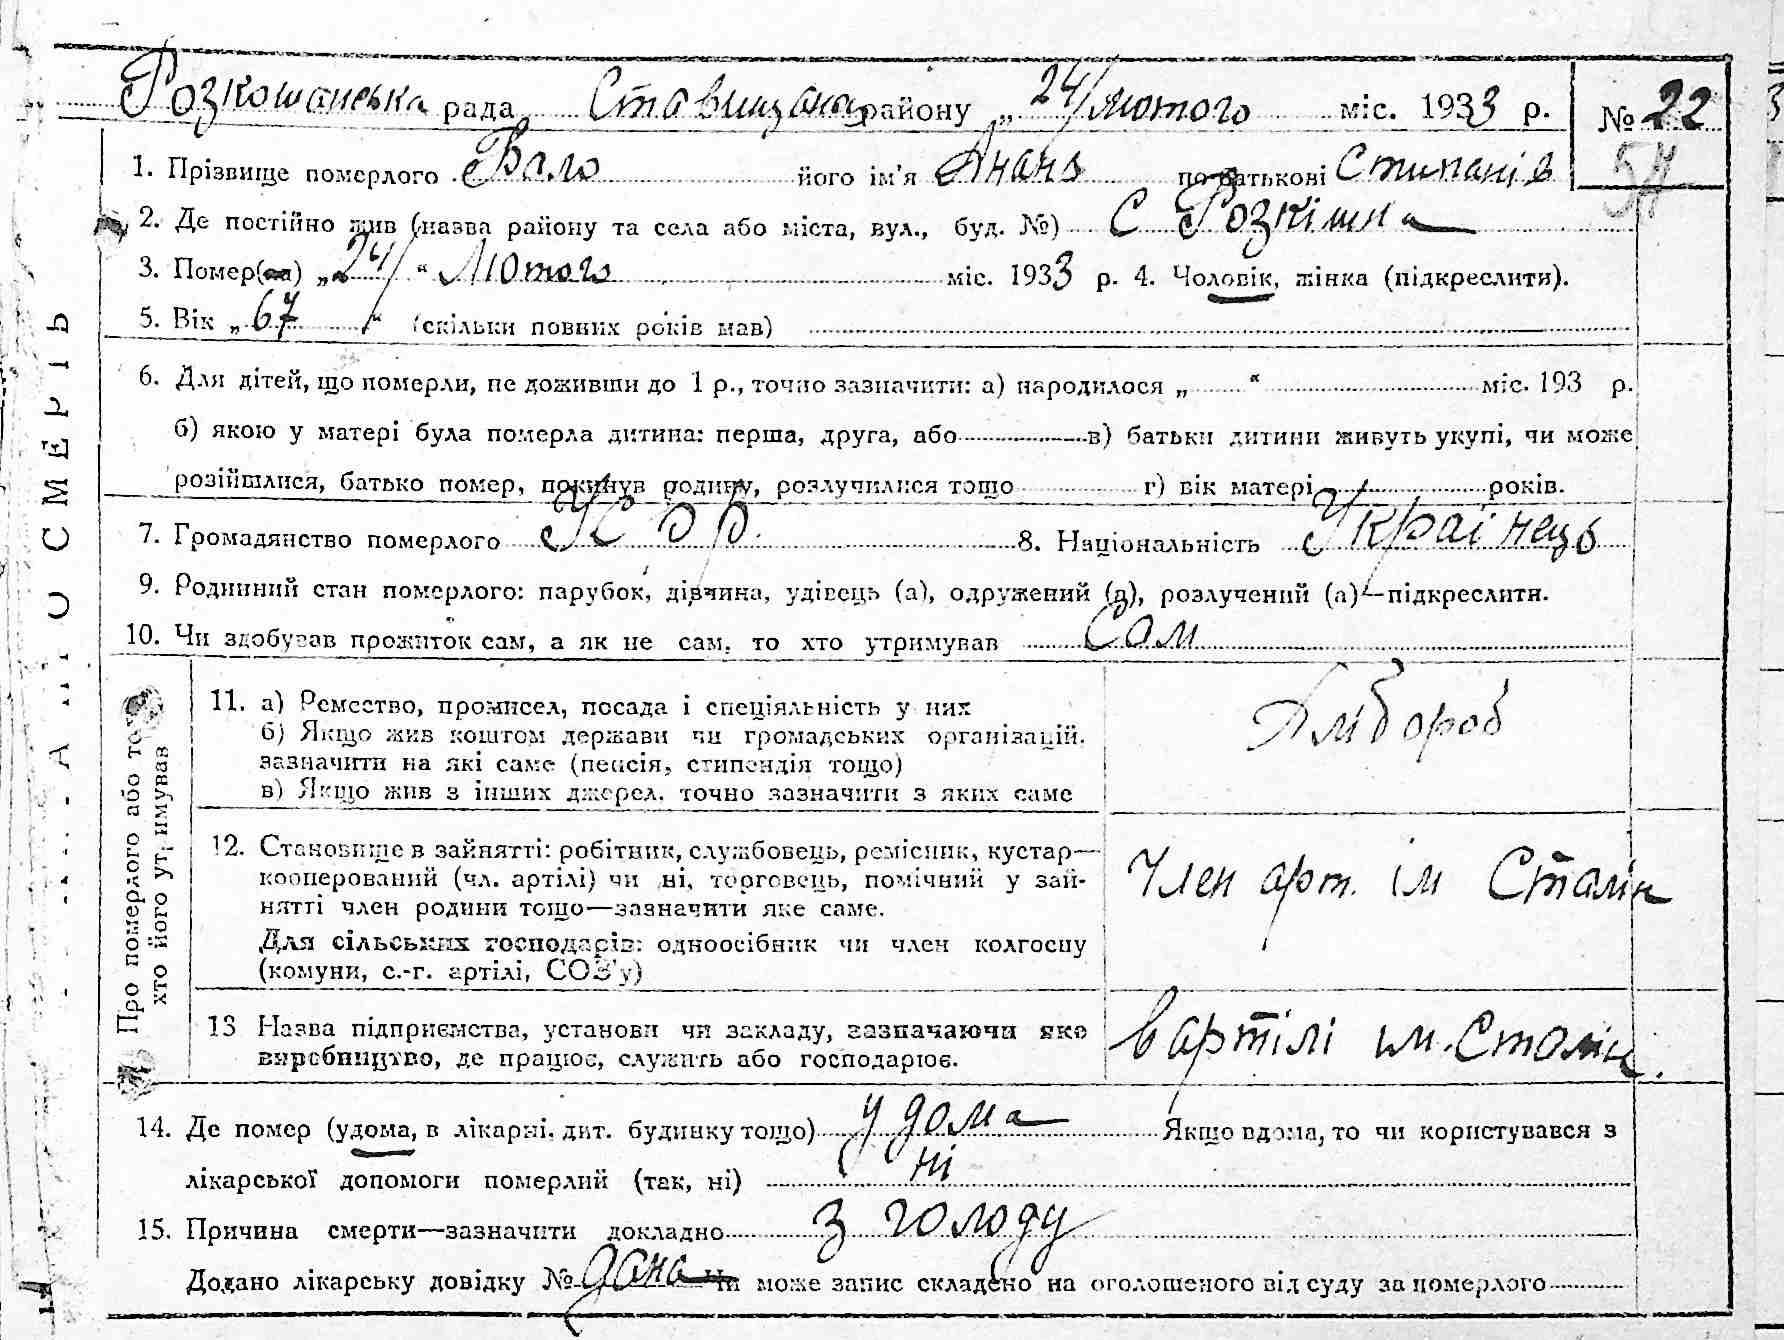 Розкошанська рада Ставищан району „24/лютого міс. 1933 р. № 22
1. Прізвище померлого Вало його ім'я Анань по батькові Стипанів 54
2. Де постійно жив (назва району та села або міста, вул., буд. №) С Розкішна
3. Помер(ла) „24/“ Лютого міс. 1933 р. 4. Чоловік, жінка (підкреслити).
5. Вік „67“ (скільки повних років мав)
6. Для дітей, що померли, не доживши до 1 р., точно зазначити: а) народилося „ “ міс. 193 р.
б) якою у матері була померла дитина: перша, друга, або в) батьки дитини живуть укупі, чи може
розійшлися, батько помер, покинув родину, розлучилися тощо г) вік матері років.
7. Громадянство померлого 8. Національність Українець
9. Родинний стан померлого: парубок, дівчина, удівець (а), одружений (а), розлучений (а)—підкреслити.
10. Чи здобував прожиток сам, а як не сам, то хто утримував Сам
Про померлого або
хто його утримував
11. а) Ремество, промисел, посада і спеціяльність у них
б) Якщо жив коштом держави чи громадських організацій,
зазначити на які саме (пенсія, стипендія тощо)
в) Якщо жив з інших джерел, точно зазначити з яких саме
Хлибороб
12. Становище в зайнятті: робітник, службовець, ремісник, кустар—
кооперований (чл. артілі) чи ні, торговець, помічний у зай-
нятті член родини тощо—зазначити яке саме.
Для сільських господарів: одноосібник чи член колгоспу
(комуни, с.-г. артілі, СОЗ'у)
Член арт. ім Сталін
13 Назва підприємства, установи чи закладу, зазначаючи яке
виробництво, де працює, служить або господарює.
в артілі им. Сталін.
14. Де помер (удома, в лікарні, дит. будинку тощо) у дома Якщо вдома, то чи користувався з
лікарської допомоги померлий (так, ні) ні
15. Причина смерти—зазначити докладно з голоду
Додано лікарську довідку № дана Чи може запис складено на оголошеного від суду за померлого
О СМЕРТЬ